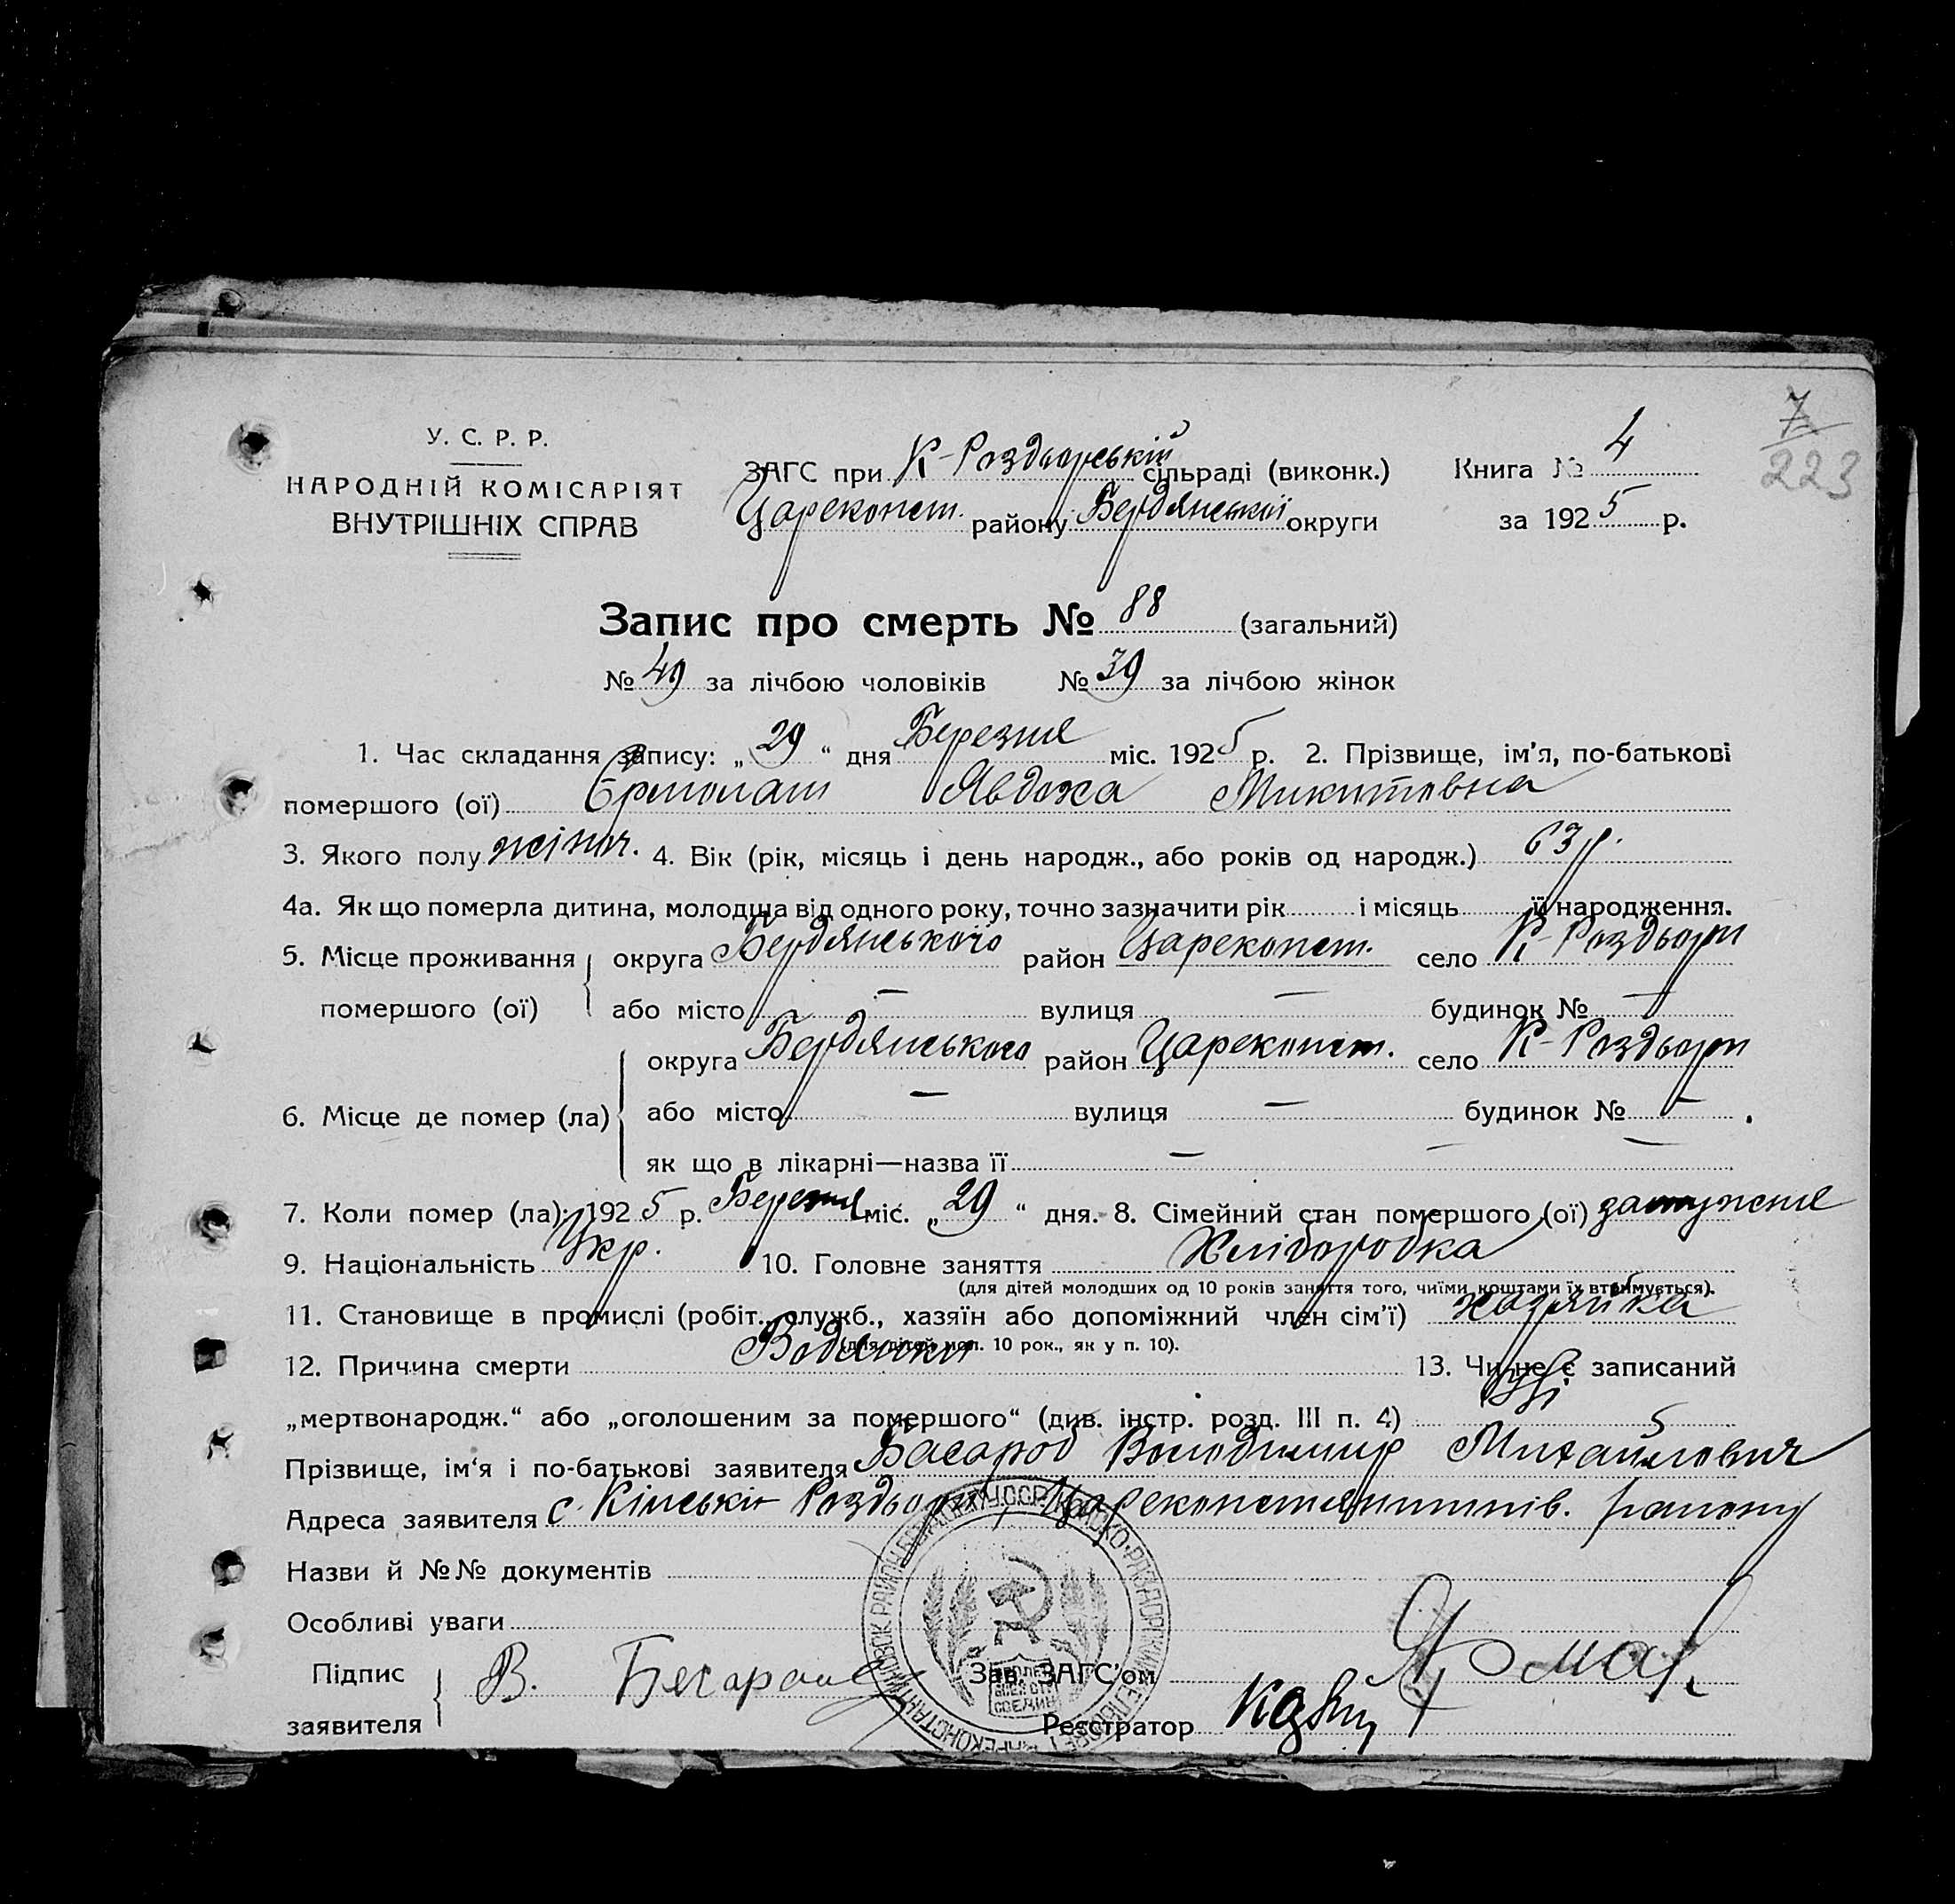 7
223
У. С. Р. Р.
НАРОДНІЙ КОМІСАРІЯТ
ВНУТРІШНІХ СПРАВ
ЗАГС при К-Роздьорській сільраді (виконк.) Книга № 4
Цареконст. району Бердянської округи за 1925 р.
Запис про смерть № 88 (загальний)
№ 49 за лічбою чоловіків № 39 за лічбою жінок
1. Час складання запису: „29“ дня Березня міс. 1925 р. 2. Прізвище, ім'я, по-батькові
помершого (ої) Явдоха Микитовна
3. Якого полу жіноч. 4. Вік (рік, місяць і день народж., або років од народж.) 63 р.
4а. Як що померла дитина, молодша від одного року, точно зазначити рік і місяць її народження.
5. Місце проживання округа Бердянського район Цареконст. село К-Роздьори
помершого (ої) або місто — вулиця — будинок № —
округа Бердянського район Цареконст. село К-Роздьори
6. Місце де помер (ла) або місто — вулиця — будинок № — .
як що в лікарні—назва її — — —
7. Коли помер (ла): 1925 р. Березня міс. „29“ дня. 8. Сімейний стан помершого (ої) замужня
9. Національність Укр. 10. Головне заняття Хліборобка
(для дітей молодших од 10 років заняття того, чиїми коштами їх втримується).
11. Становище в промислі (робіт., служб., хазяїн або допоміжний член сім'ї) хазяйка
(для дітей мол. 10 рок., як у п. 10).
12. Причина смерти Водянка 13. Чи не є записаний
„мертвонародж.“ або „оголошеним за помершого“ (див. інстр. розд. III п. 4) Ні
Прізвище, ім'я і по-батькові заявителя Володимир Михайлович
Адреса заявителя с. Кінські Роздьори, Цареконстянтинів. району
Назви й №№ документів
Особливі уваги
Підпис В. Зав. ЗАГС'ом
заявителя Реєстратор